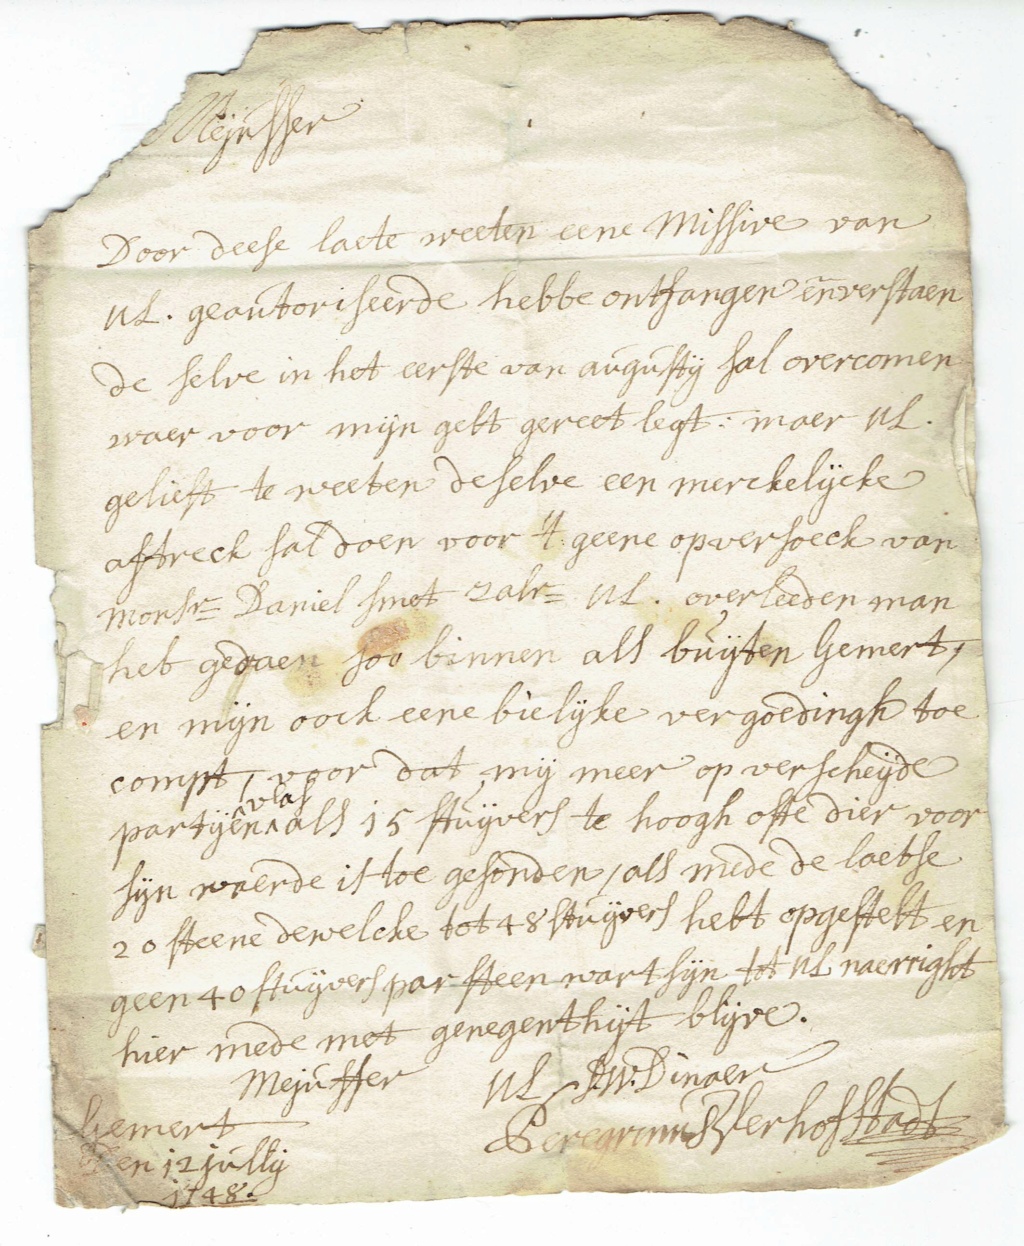 Mejuffer
Door deese laete weeten eene Missive van
UL. geautoriseerde hebbe ontfangen en verstaen
de selve in het eerste van augustij sal overcomen
waer voor mijn gelt gereet legt: maer UL.
gelieft te weeten deselve een merckelijcke
aftreck sal doen voor 't geene op versoeck van
Monsr Daniel smet zalr UL. overleeden man
heb gedaen soo binnen als buijten Gemert,
en mijn oock eene bielijke vergoedingh toe
compt, voor dat mij meer op verscheijde
partijen vlas als 15 stuijvers te hoogh ofte dier voor
sijn waerde is toe gesonden, als mede de laetse
20 steene dewelcke tot 48 stuijvers hebt opgestelt en
geen 40 stuijvers par steen wart sijn tot UL naerright
hier mede met genegenthijt blijve.
Mejuffer UL D.W. Dinaer
Gemert Peregrinus Verhofstadt
den 12 jullij
1748.